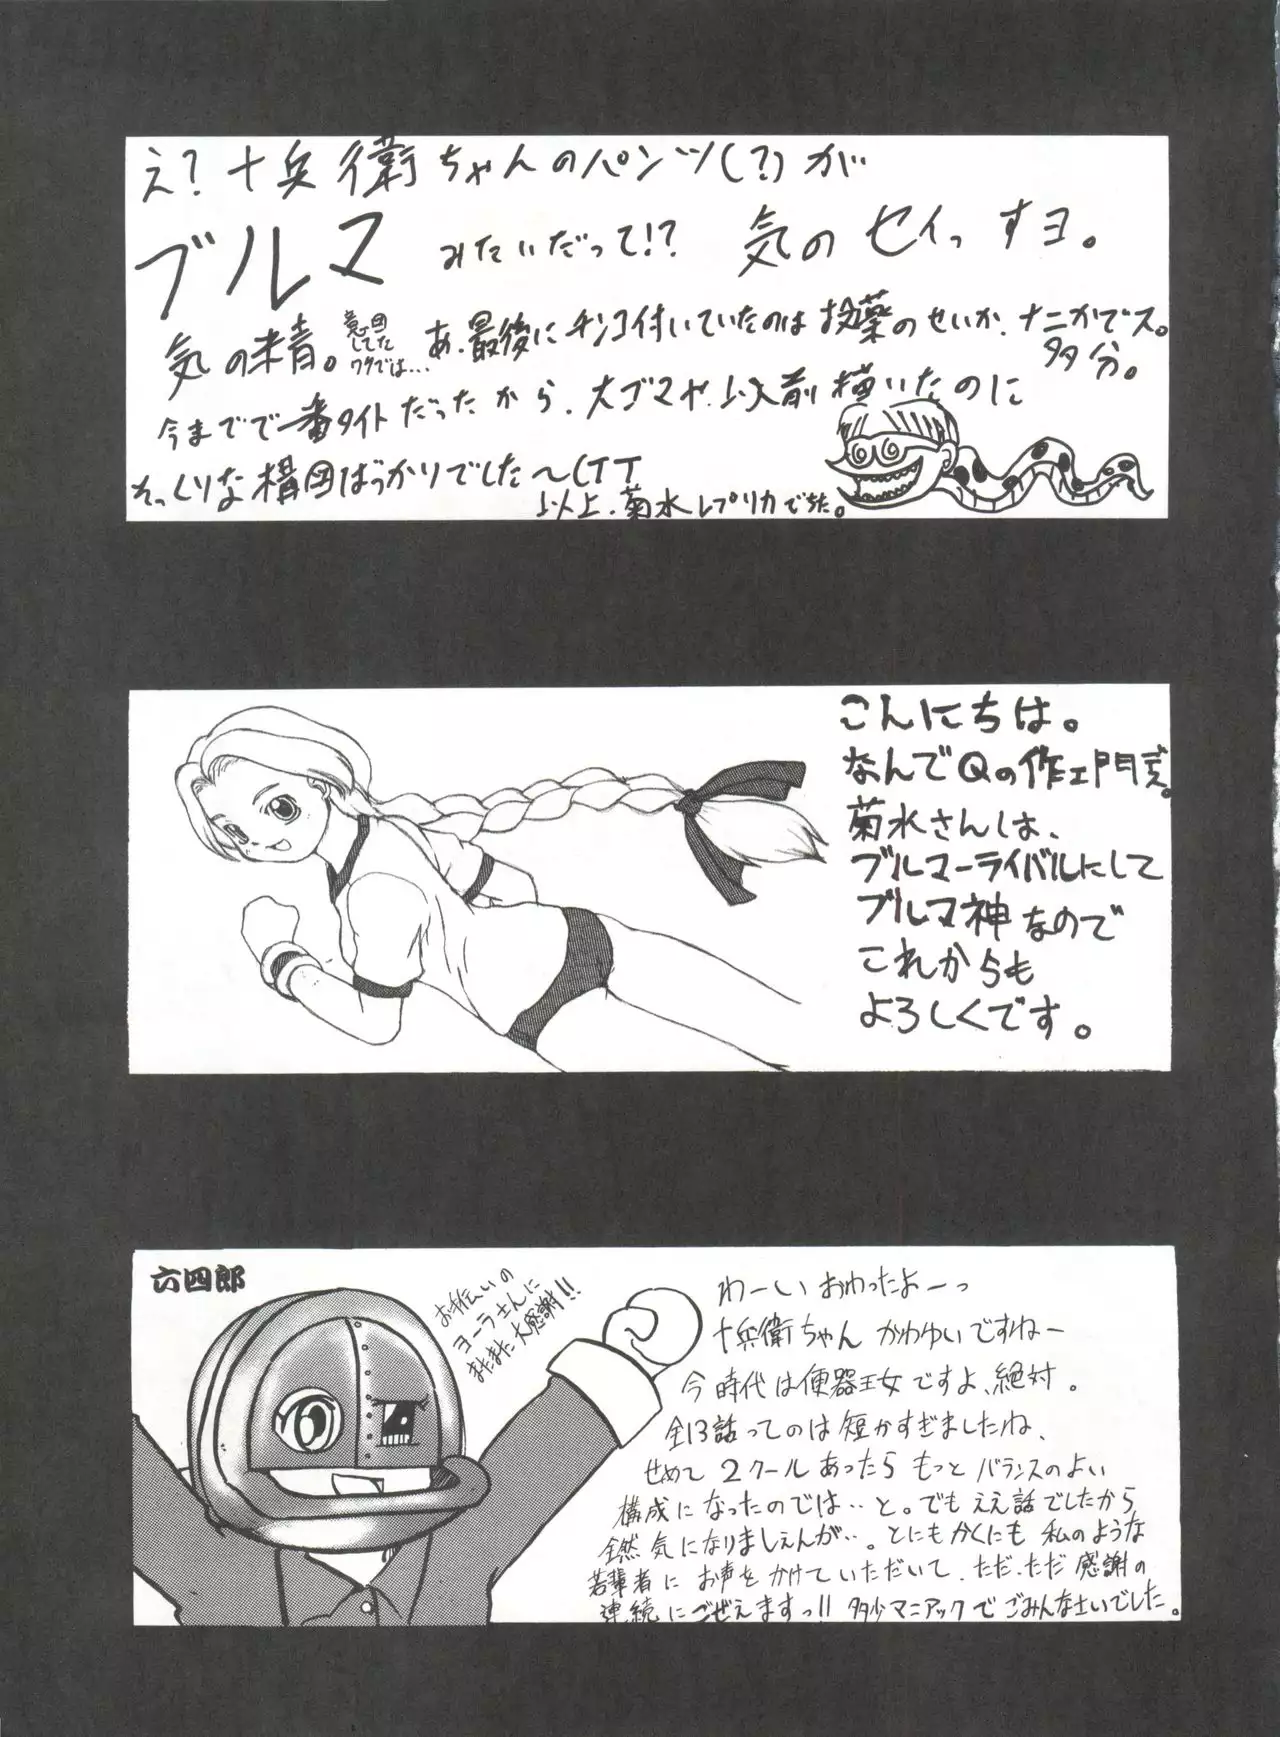 え?十兵衛ちゃんのパンツ(?)が
ブルマ みたいだって!? 気のセイっすヨ。
気の精。
意図
してた
ワケでは…
あ、最後にチンコ付いていたのは投薬のせいか、ナニかでス。
多分。
今までで一番タイトだったから、大ゴマや、以前描いたのに
そっくりな構図ばっかりでした～(TT
以上、菊水レプリカでちた。
こんにちは。
なんでQの作エ門式。
菊水さんは、
ブルマーライバルにして
ブルマ神なので
これからも
よろしくです。
六四郎
お手伝いの
ヨーラさんに
またまた大感謝!!
わーい おわったよーっ
十兵衛ちゃん かわゆいですねー
今時代は便器王女ですよ、絶対。
全13話ってのは短かすぎましたね、
せめて2クールあったらもっとバランスのよい
構成になったのでは‥と。でもええ話でしたから
全然気になりましぇんが‥。とにもかくにも私のような
若輩者にお声をかけていただいて、ただ、ただ感謝の
連続にごぜえますっ!! 多少マニアックでごみんなさいでした。